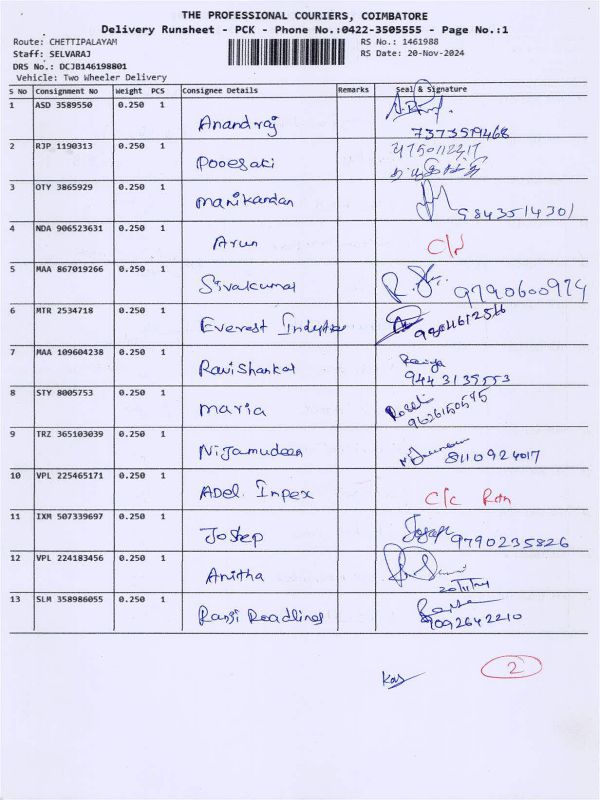 THE PROFESSIONAL COURIERS, COIMBATORE
Delivery Runsheet - PCK - Phone No.:0422-3505555 - Page No.:1
Route: CHETTIPALAYAM RS No.: 1461988
Staff: SELVARAJ RS Date: 20-Nov-2024
DRS No.: DCJB146198801
Vehicle: Two Wheeler Delivery
S No Consignment No Weight PCS Consignee Details Remarks Seal & Signature
1 ASD 3589550 0.250 1 Anandraj
7373579468
2 RJP 1190313 0.250 1
3 OTY 3865929 0.250 1 Manikandan 9843514301
4 NDA 906523631 0.250 1 Arun
5 MAA 867019266 0.250 1 Sivakumar 9790600974
6 MTR 2534718 0.250 1 Everest
7 MAA 109604238 0.250 1 Ravishankar
9443139553
8 STY 8005753 0.250 1 Maria
9 TRZ 365103039 0.250 1 Nijamudeen 8110924017
10 VPL 225465171 0.250 1 Adel. Inpex C/c Rtn
11 IXM 507339697 0.250 1 Josep Joseph 9790235826
12 VPL 224183456 0.250 1 Anitha
20/11/24
13 SLM 358986055 0.250 1
9092642210
2